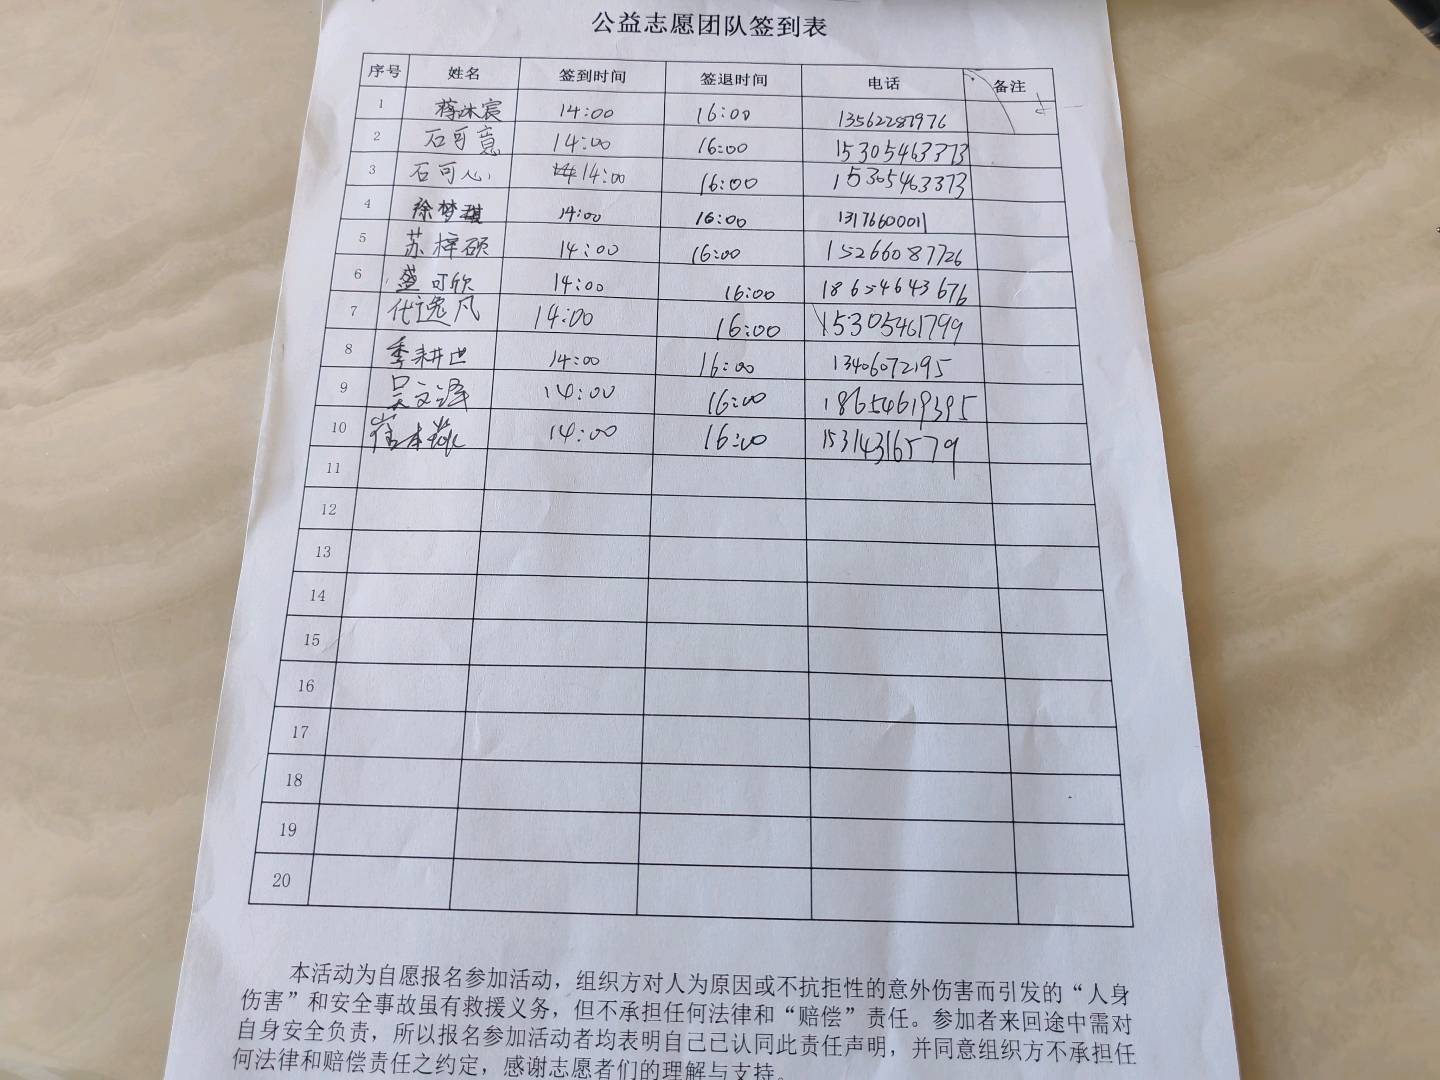 公益志愿团队签到表
序号 姓名 签到时间 签退时间 电话 备注
1 蒋沐宸 14:00 16:00 13562287976
2 石可意 14:00 16:00 15305463373
3 石可心 14:00 16:00 15305463373
4 徐梦琪 14:00 16:00 13176600011
5 苏梓硕 14:00 16:00 15266087726
6 盛可欣 14:00 16:00 18654643676
7 代逸凡 14:00 16:00 15305461799
8 季耕世 14:00 16:00 13406072195
9 吴文泽 14:00 16:00 18654619395
10 崔本 14:00 16:00 15314316579
11
12
13
14
15
16
17
18
19
20
本活动为自愿报名参加活动，组织方对人为原因或不抗拒性的意外伤害而引发的“人身
伤害”和安全事故虽有救援义务，但不承担任何法律和“赔偿”责任。参加者来回途中需对
自身安全负责，所以报名参加活动者均表明自己已认同此责任声明，并同意组织方不承担任
何法律和赔偿责任之约定，感谢志愿者们的理解与支持。